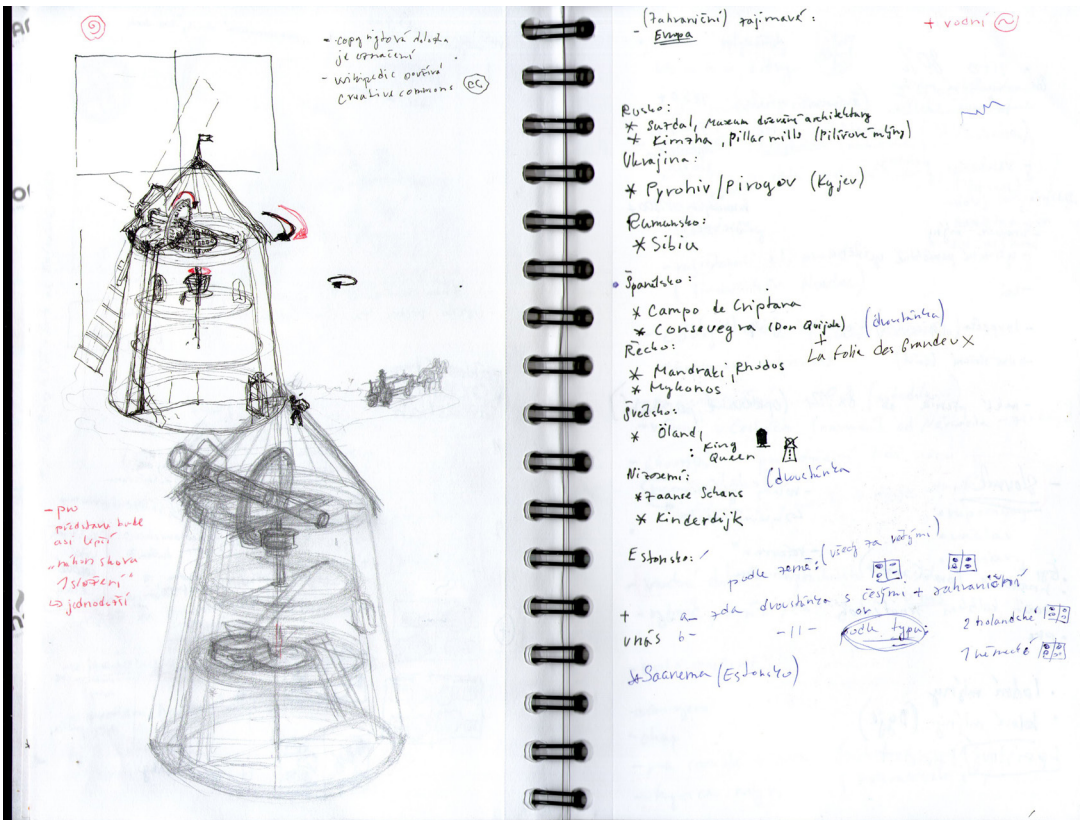 - copyrightová doložka
je označení
- wikipedie používá
Creative commons (cc)
- pro
představu bude
asi lepší
"
1 složení"
↳ jednodušší
(Zahraniční) zajímavé:
- Evropa
+ vodní
Rusko:
* Suzdal, Muzeum dřevěné architektury
* Kimzha, Pillar mills (Pilířové mlýny)
Ukrajina:
* Pyrohiv/Pirogov (Kyjev)
Rumunsko:
* Sibiu
Španělsko:
* Campo de Criptana
* Consevegra (Don Quijote) (dvoustránka)
+
La Folie des Grandeux
Řecko:
* Mandraki, Rhodos
* Mykonos
Švédsko:
* Öland,
: King
Queen
Nizozemí: (dvoustránka
* Zaanse Schans
* Kinderdijk
Estonsko:
podle země: (všech za větrými)
+ a- zda dvoustránka s českými + zahraniční
or
u nás b- -11- podle typu:
2 holandské
1 německé
* Saarema (Estonsko)